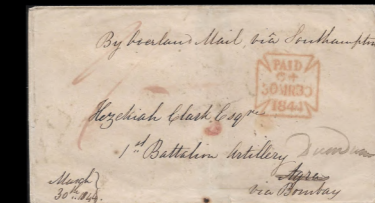 By overland Mail, via Southampton
PAID
30 MR 30
1844
Hezekiah Clark Esqre
1st Battalion Artillery
Dum Dum
Agra
via Bombay
March
30th 1844